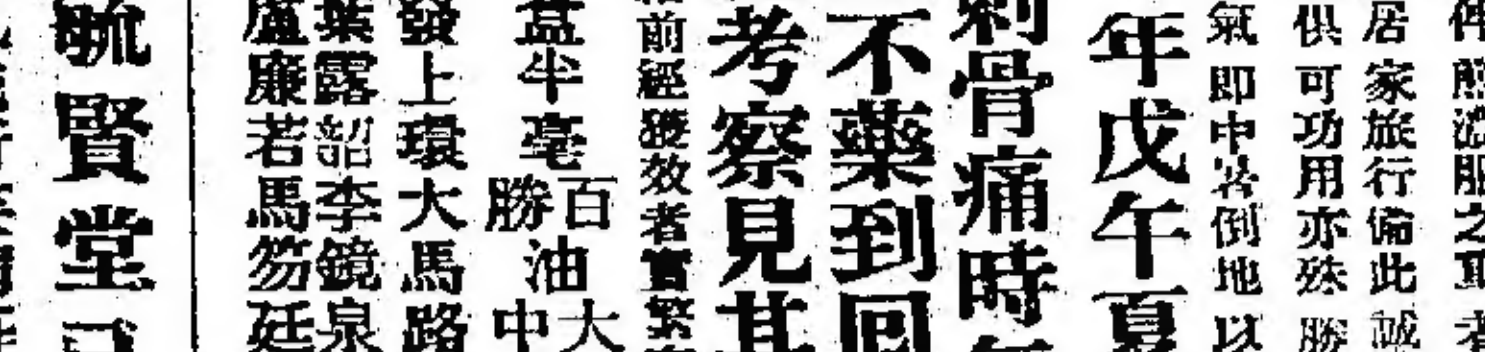 煎濃服之
居家旅行備此誠
供可功用亦殊勝
氣即中暑倒地以
年戊午夏
刺骨痛時
不藥到回
考察見其
前經獲效者實繁
盒半毫
百油大
勝中
發上環大馬路
葉露韶李鏡泉
盧廉若馬笏廷
毓賢堂